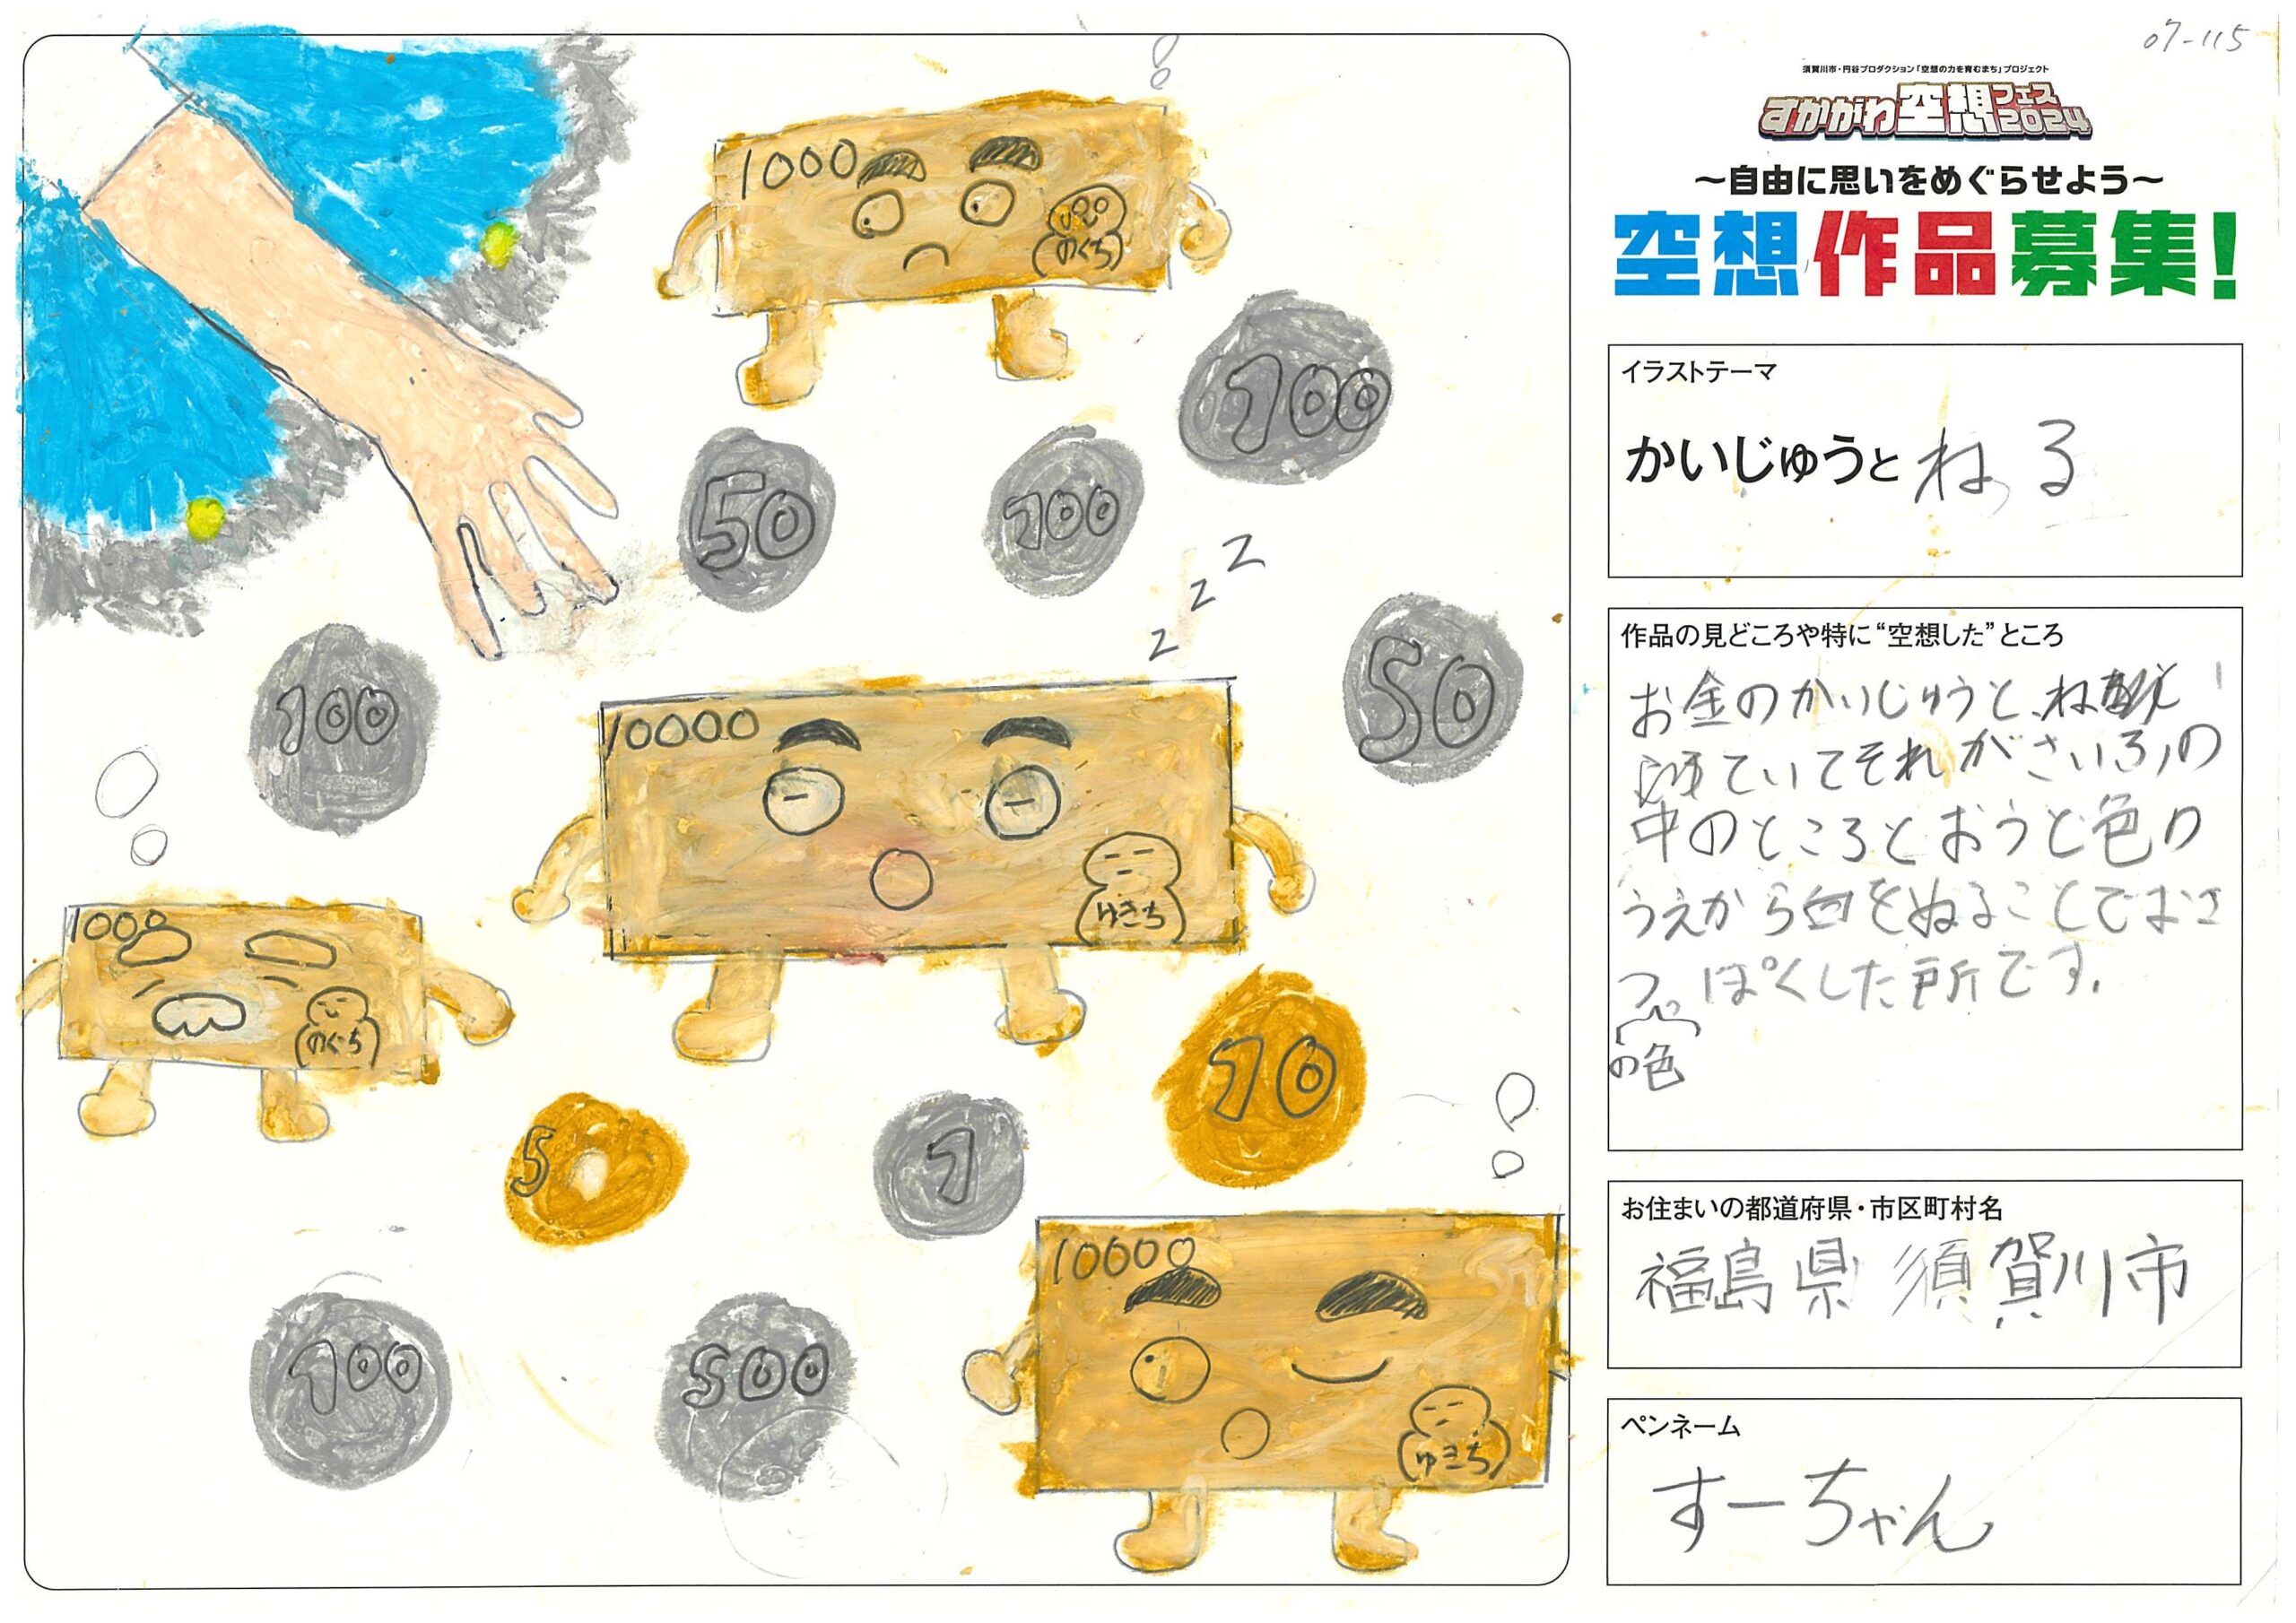 07-115
須賀川市・円谷プロダクション「空想の力を育むまち」プロジェクト
すかがわ空想フェス2024
～自由に思いをめぐらせよう～
空想作品募集!
イラストテーマ
かいじゅうと ねる
作品の見どころや特に“空想した”ところ
お金のかいじゅうと、ね
ていてそれがさいふの
中のところとおうど色の
うえから白をぬることでおさ
つっぽくした所です。
の色
お住まいの都道府県・市区町村名
福島県 須賀川市
ペンネーム
すーちゃん
1000
のぐち
100
50
100
z z z
50
100
10000
ゆきち
1000
のぐち
10
5
1
10000
ゆきち
100
500